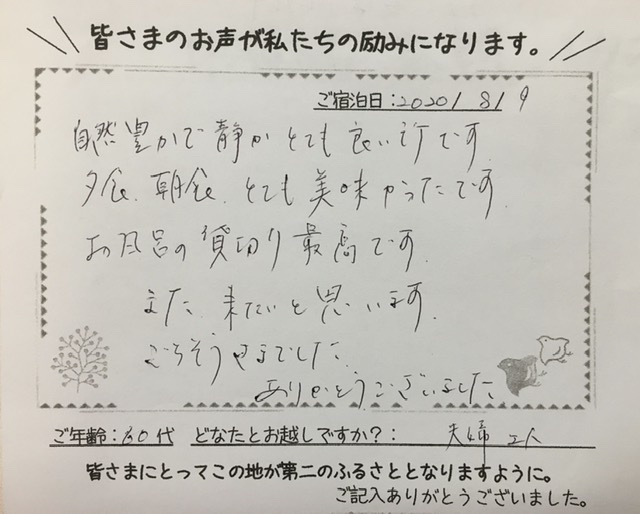 皆さまのお声が私たちの励みになります。
ご宿泊日:2020/8/9
自然豊かで静かとても良い所です
夕食、朝食、とても美味かったです
お風呂の貸切り最高です.
また、来たいと思います.
ごちそうさまでした.
ありがとうございました
ご年齢:60代 どなたとお越しですか?: 夫婦 2人
皆さまにとってこの地が第二のふるさととなりますように。
ご記入ありがとうございました。